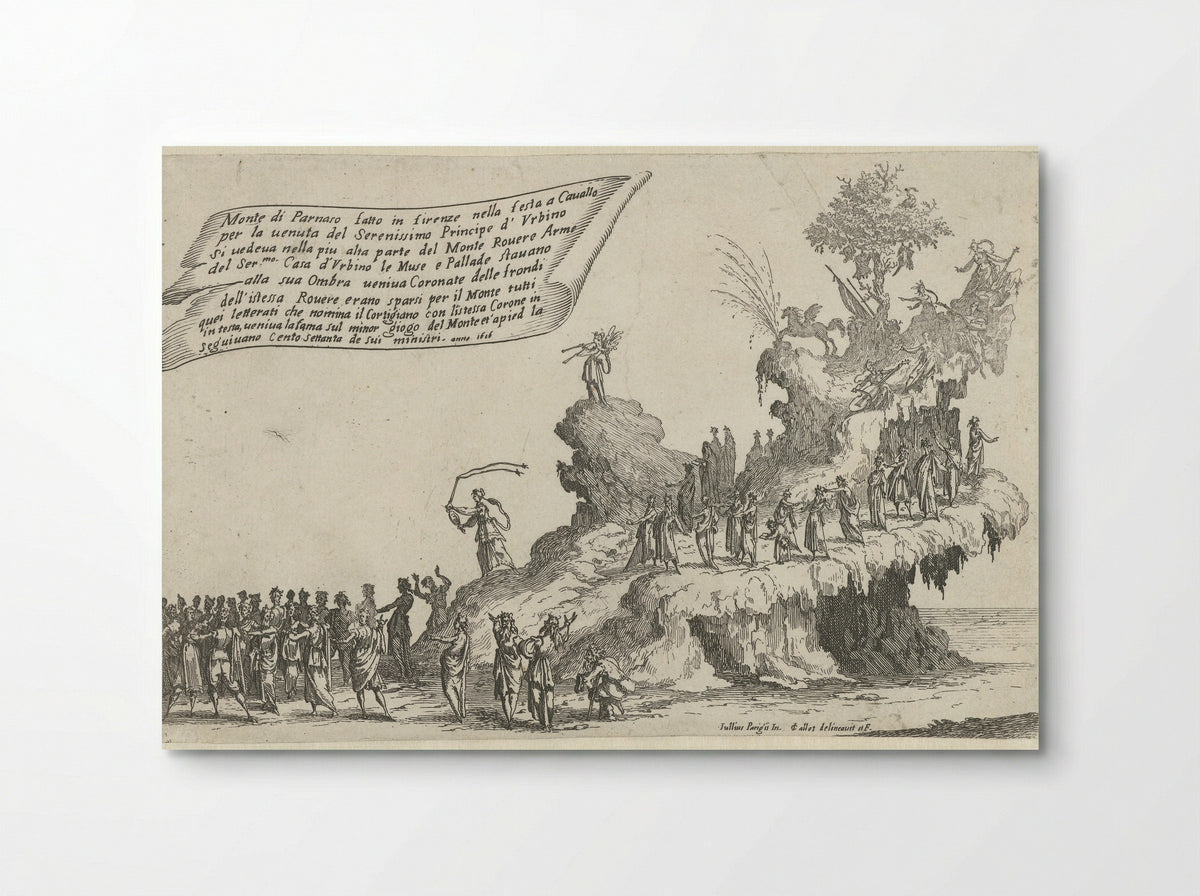 Monte di Parnaso fatto in firenze nella festa a Cauallo
per la uenuta del Serenissimo Principe d' Vrbino
Si uedeua nella piu alta parte del Monte Rouere Arme
del Ser.mo. Casa d'Vrbino le Muse e Pallade stauano
alla sua Ombra ueniua Coronate delle frondi
dell'istessa Rouere erano sparsi per il Monte tutti
quei letterati che nomina il Cortigiano con l'istessa Corone in
in testa, ueniua la fama sul minor giogo del Monte et a pied la
seguiuano Cento settanta de sui ministri. anno 1616
Iullius Parigii In. Callot delineauit et F.